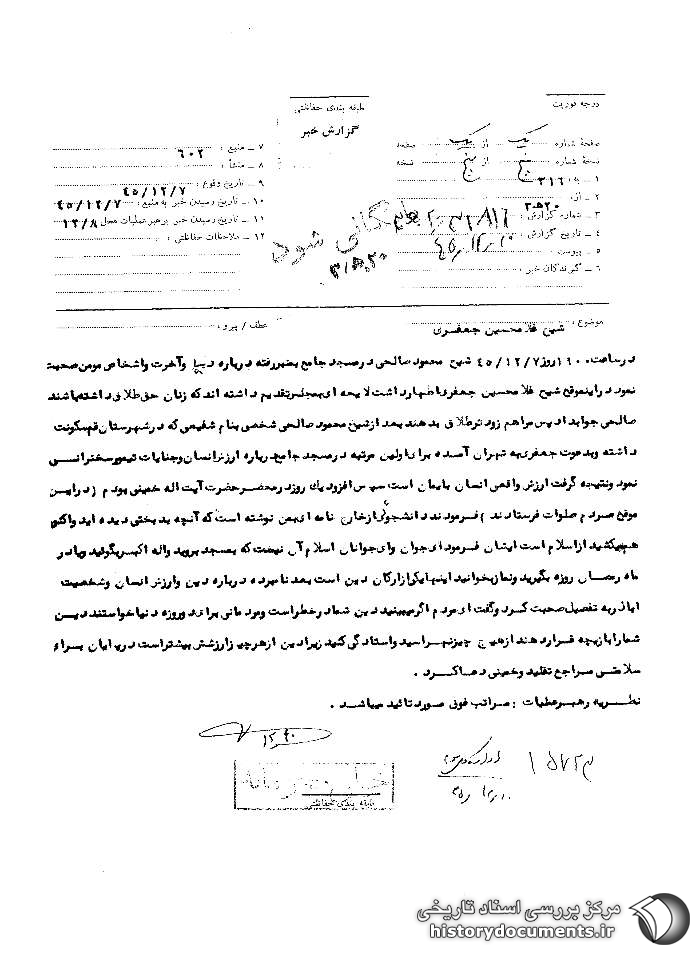 درجه فوریت
طبقه بندی حفاظتی
گزارش خبر
صفحهٔ شماره یک از یک صفحه
نسخهٔ شماره پنج از پنج نسخه
۱ ـ به : ۳۱۶
۲ ـ از : ۲۰ه۳
۳ ـ شماره گزارش :
۴ ـ تاریخ گزارش : ۴۵/۱۲/۱۰
۵ ـ پیوست
۶ ـ گیرندگان خبر :
۷ ـ منبع : ۶۰۲
۸ ـ منشأ :
۹ ـ تاریخ وقوع : ۴۵/۱۲/۷
۱۰ ـ تاریخ رسیدن خبر به منبع : ۴۵/۱۲/۷
۱۱ ـ تاریخ رسیدن خبر به رهبر عملیات محل ۱۲/۸
۱۲ ـ ملاحظات حفاظتی :
بایگانی شود
موضوع : شیخ غلامحسین جعفری
عطف / پیرو :
در ساعت ۱۹۰۰ روز ۴۵/۱۲/۷ شیخ محمود صالحی در مسجد جامع بمنبر رفته درباره دنیا و آخرت و اشخاص مومن صحبت
نمود در اینموقع شیخ غلامحسین جعفری اظهار داشت لایحه ای بمجلس تقدیم داشته اند که زنان حق طلاق داشته باشند
صالحی جواب داد پس مرا هم زودتر طلاق بدهند بعد از شیخ محمود صالحی شخصی بنام شفیعی که در شهرستان قم سکونت
داشته و بدعوت جعفری به تهران آمده برای اولین مرتبه در مسجد جامع درباره ارزش انسان و جنایات تیمور سخنرانی
نمود و نتیجه گرفت ارزش واقعی انسان بایمان است سپس افزود یک روز در محضر حضرت آیت اله خمینی بودم (در این
موقع مردم صلوات فرستادند) فرمودند دانشجوئی از خارج نامه ای بمن نوشته است که آنچه بدبختی دیده اید و اکنون
هم میکشید از اسلام است ایشان فرمود ای جوان وای جوانان اسلام آن نیست که بمسجد بروید و اله اکبر بگوئید و یا در
ماه رمضان روزه بگیرید و نماز بخوانید اینها یکی از ارکان دین است بعد نامبرده درباره دین و ارزش انسان و شخصیت
اباذر به تفصیل صحبت کرد و گفت ای مردم اگر میبینید دین شما در خطر است و مردمانی برای دو روزه دنیا خواستند دین
شما را بازیچه قرار دهند از هیچ چیز نهراسید و استادگی کنید زیرا دین از هر چیز ارزشش بیشتر است در پایان برای
سلامتی مراجع تقلید و خمینی دعا کرد .
نظریه رهبر عملیات : مراتب فوق مورد تائید میباشد .
۱۵۷۲۳
۴۵/۱۲/۱۰
طبقه بندی حفاظتی
مرکز بررسی اسناد تاریخی
historydocuments.ir